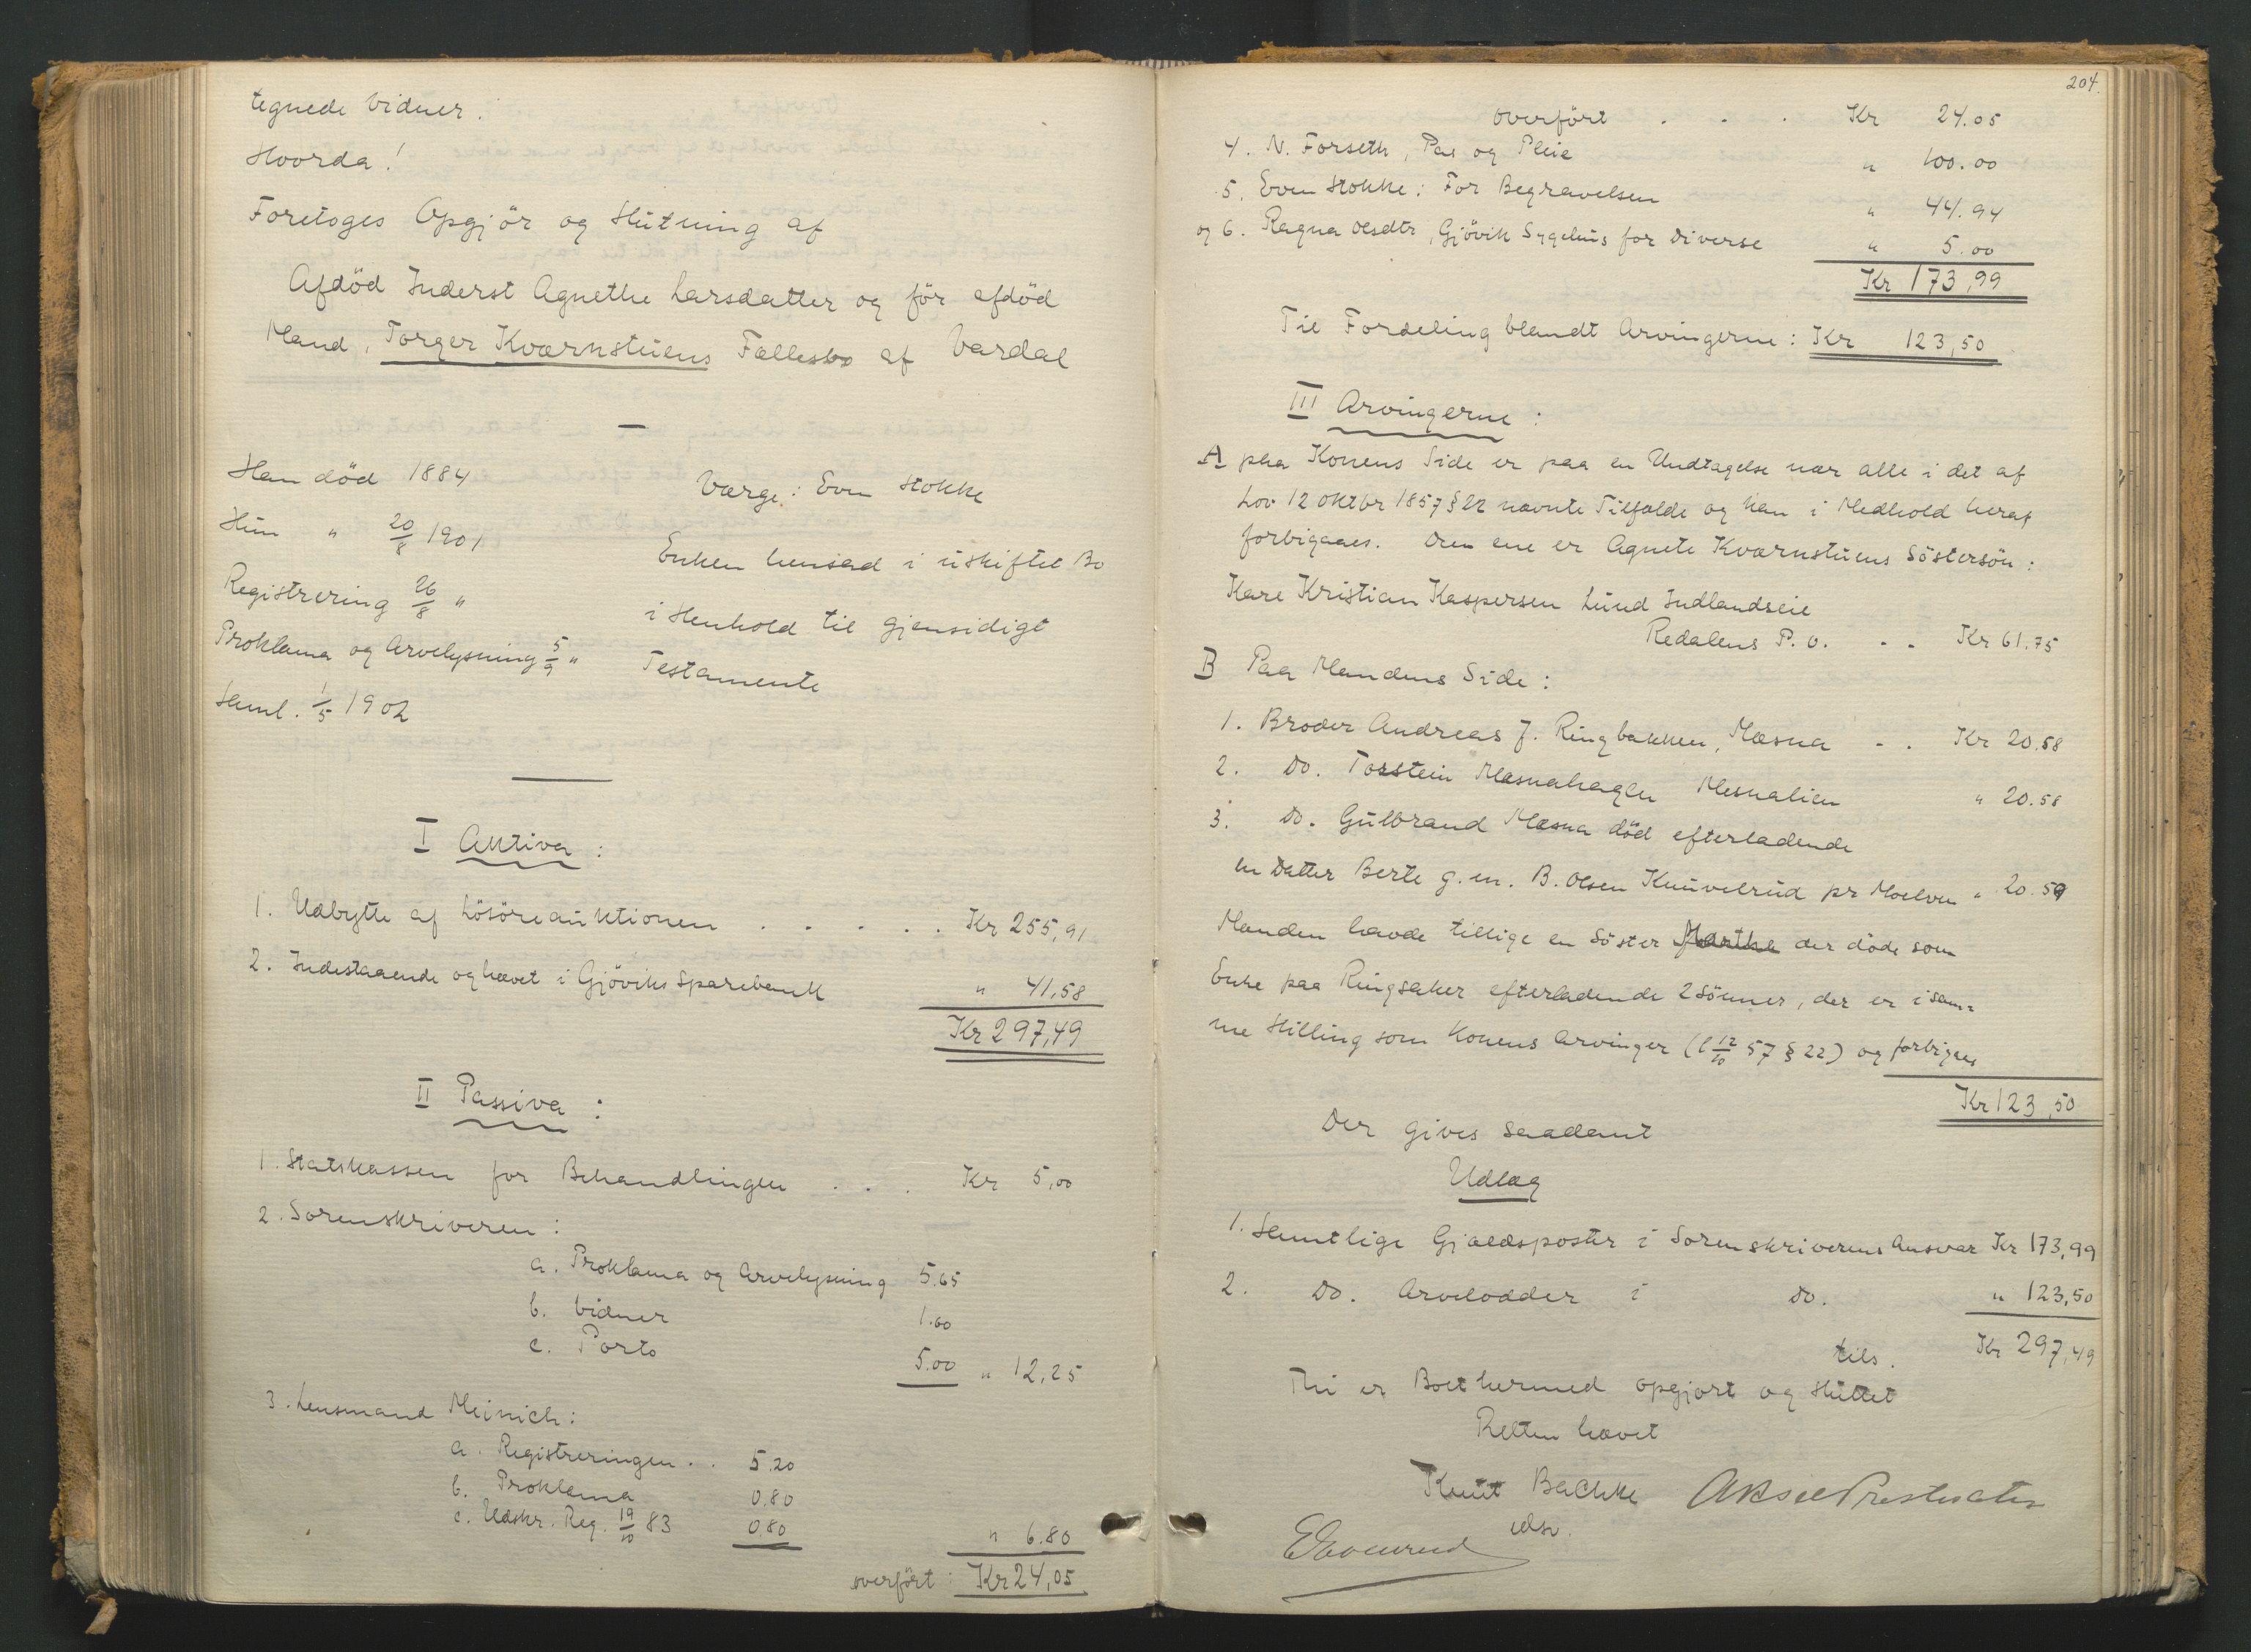 tegnede Vidner.
Hvorda!
Foretoges Opgjör og Slutning af
Afdöd Inderst Agnethe Larsdatter og för afdöd
Mand, Torger Kværnstuens Fællesbo af Vardal
—
Han död 1884
Værge: Even Stokke
Hun " 20/8 1901
Enken hensad i uskiftet Bo
Registrering 26/8 "
i Henhold til gjensidigt
Proklama og Arvelysning 5/9 "
Testamente
Saml. 1/5 1902
I Aktiva:
1. Udbytte af Lösöreauktionen . . . . . Kr 255,91
2. Indestaaende og hævet i Gjöviks Sparebank " 41,58
Kr 297,49
II Passiva:
1. Statskassen for Behandlingen . . . Kr 5,00
2. Sorenskriveren:
a. Proklama og Arvelysning 5.65
b. Vidner 1.60
c. Porto 5.00 " 12,25
3. Lensmand Meinich:
a. Registreringen . . 5.20
b. Proklama 0.80
c. Udskr. Reg. 19/10 83 0.80 " 6.80
overfört: Kr 24,05
204.
overfört . . . Kr 24.05
4. N. Forseth, Pas og Pleie " 100.00
5. Even Stokke: For Begravelsen " 44.94
og 6. Ragna Olsdtr, Gjövik Sygehus for Diverse " 5.00
Kr 173,99
Til Fordeling blandt Arvingerne: Kr 123,50
III Arvingerne:
A paa Konens Side er paa en Undtagelse nær alle i det af
Lov 12 Oktbr 1857 § 22 nævnte Tilfælde og kan i Medhold heraf
forbigaaes. Den ene er Agnete Kværnstuens Söstersön:
Kare Kristian Kaspersen Lund Indlandseie
Redalens P. O. . . Kr 61.75
B Paa Mandens Side:
1. Broder Andreas J. Ringbakken, Mæsna . . Kr 20.58
2. Do. Torstein Mæsnahagen Mesnalien " 20.58
3. Do. Gulbrand Mæsna död efterladende
en Datter Berte g. m. B. Olsen Knuvelrud pr Moelven " 20.59
Manden havde tillige en Söster Marthe der döde som
Enke paa Ringsaker efterladende 2 Sönner, der er i sam=
me Stilling som Konens Arvinger (l 12/10 57 § 22) og forbigaaes
Kr 123,50
Der gives saadant
Udlæg
1. Samtlige Gjældsposter i Sorenskriverens Ansvar Kr 173,99
2. Do. Arvelodder i Do. " 123,50
tils. Kr 297,49
Thi er Boet hermed opgjort og sluttet
Retten hævet
Knut Bachke Aksel Prestesæter
edsv.